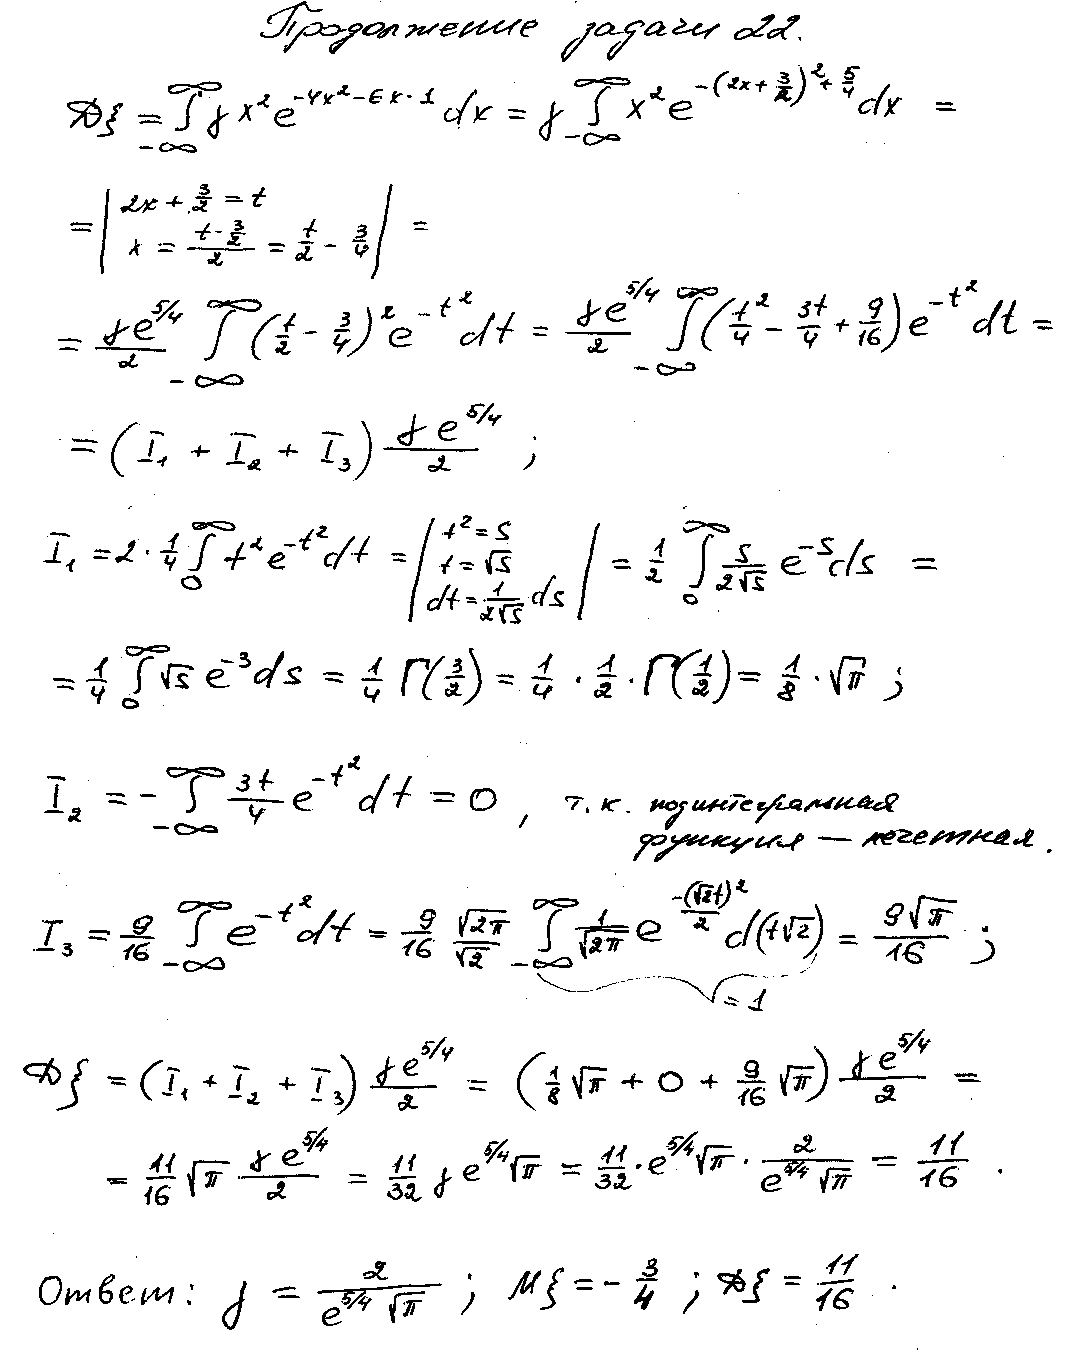 Продолжение задачи 22.
Dξ = ∫_{-∞}^{∞} γ x² e^{-4x²-6x-1} dx = γ ∫_{-∞}^{∞} x² e^{-(2x+3/2)²+5/4} dx =
= | 2x + 3/2 = t
x = (t - 3/2)/2 = t/2 - 3/4 | =
= γe^{5/4}/2 ∫_{-∞}^{∞} (t/2 - 3/4)² e^{-t²} dt = γe^{5/4}/2 ∫_{-∞}^{∞} (t²/4 - 3t/4 + 9/16) e^{-t²} dt =
= (I₁ + I₂ + I₃) γe^{5/4}/2 ;
I₁ = 2 · 1/4 ∫_0^∞ t² e^{-t²} dt = | t² = s
t = √s
dt = 1/(2√s) ds | = 1/2 ∫_0^∞ s/(2√s) e^{-s} ds =
= 1/4 ∫_0^∞ √s e^{-s} ds = 1/4 Γ(3/2) = 1/4 · 1/2 · Γ(1/2) = 1/8 · √π ;
I₂ = - ∫_{-∞}^{∞} 3t/4 e^{-t²} dt = 0 , т.к. подинтегральная
функция — нечетная.
I₃ = 9/16 ∫_{-∞}^{∞} e^{-t²} dt = 9/16 √2π/√2 ∫_{-∞}^{∞} 1/√2π e^{-(√2t)²/2} d(t√2) = 9√π/16 ;
= 1
Dξ = (I₁ + I₂ + I₃) γe^{5/4}/2 = (1/8 √π + 0 + 9/16 √π) γe^{5/4}/2 =
= 11/16 √π γe^{5/4}/2 = 11/32 γ e^{5/4} √π = 11/32 · e^{5/4} √π · 2/(e^{5/4} √π) = 11/16 .
Ответ: γ = 2/(e^{5/4} √π) ; Mξ = - 3/4 ; Dξ = 11/16 .